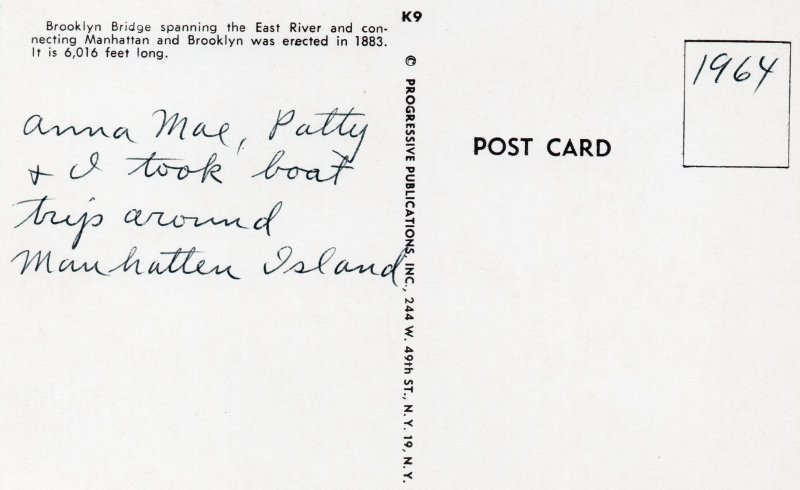 Brooklyn Bridge spanning the East River and con-
necting Manhattan and Brooklyn was erected in 1883.
It is 6,016 feet long.
Anna Mae, Patty
+ I took boat
trip around
Manhatten Island
K9
© PROGRESSIVE PUBLICATIONS, INC., 244 W. 49th ST., N. Y. 19, N. Y.
POST CARD
1964